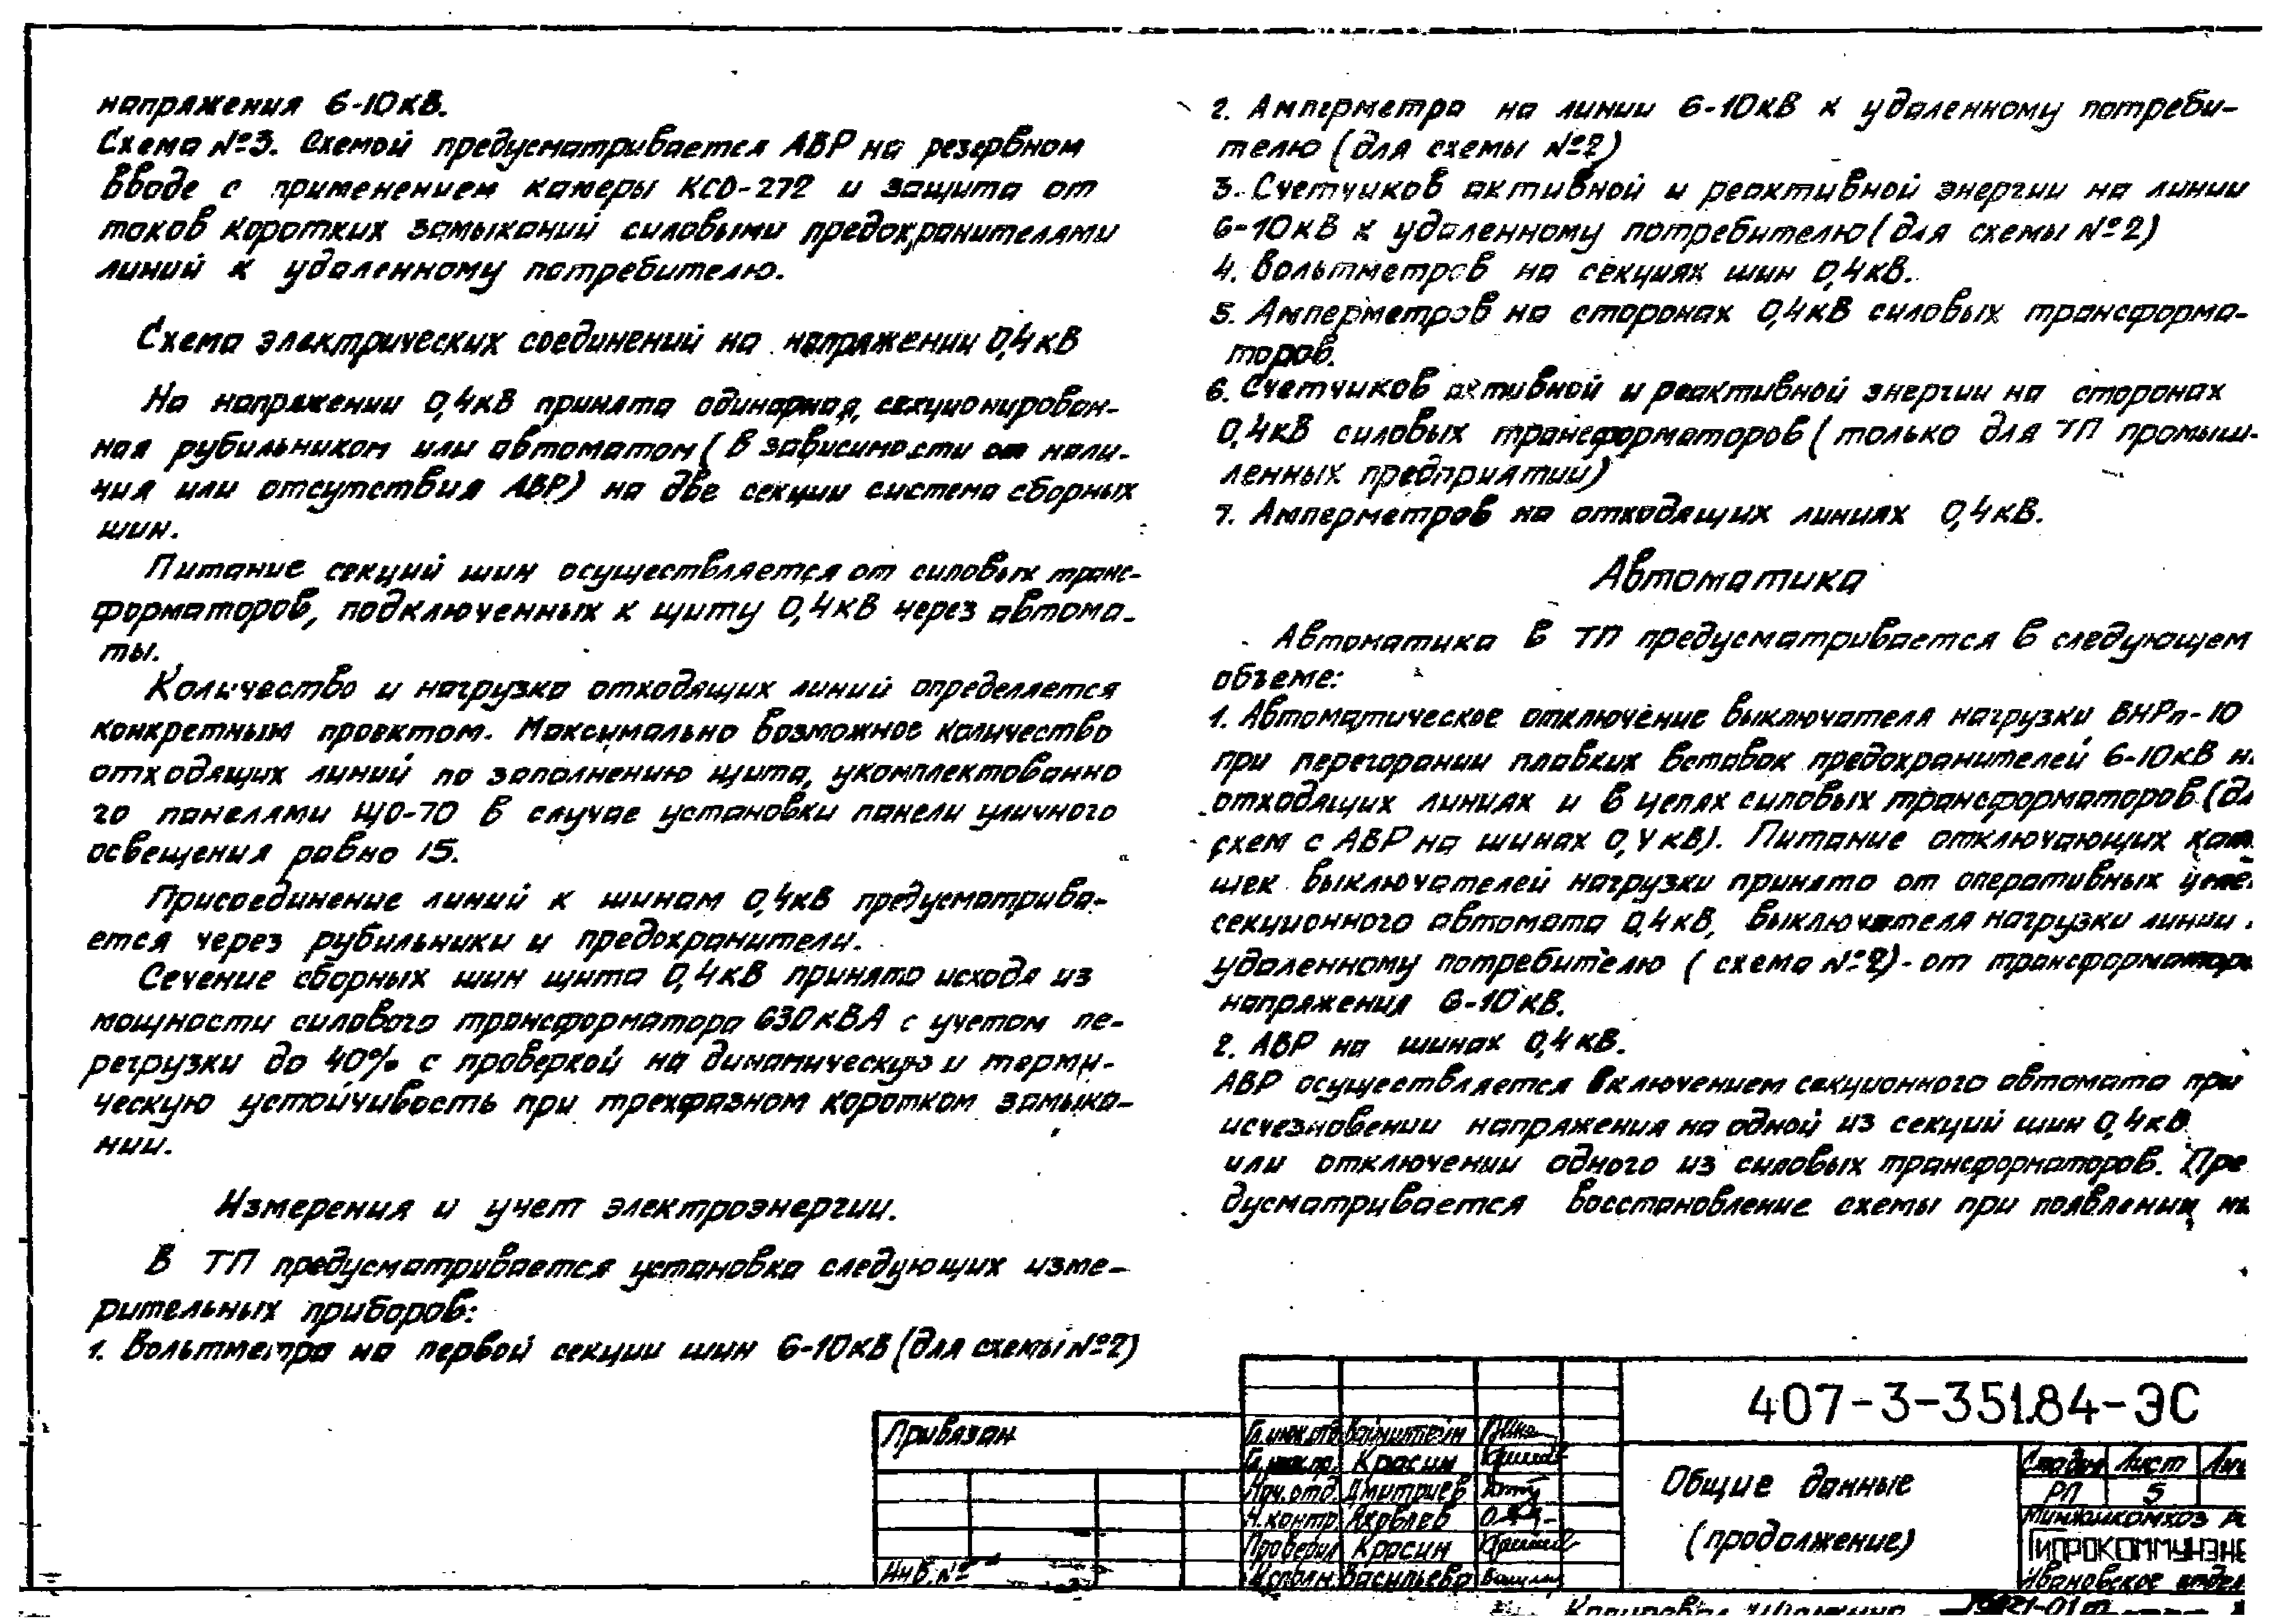 напряжения 6-10кВ.
Схема №3. Схемой предусматривается АВР на резервном
вводе с применением камеры КСО-272 и защита от
токов коротких замыканий силовыми предохранителями
линий к удаленному потребителю.
Схема электрических соединений на напряжении 0,4кВ
На напряжении 0,4кВ принята одинарная, секционирован-
ная рубильником или автоматом (в зависимости от нали-
чия или отсутствия АВР) на две секции система сборных
шин.
Питание секций шин осуществляется от силовых транс-
форматоров, подключенных к щиту 0,4кВ через автома-
ты.
Количество и нагрузка отходящих линий определяется
конкретным проектом. Максимально возможное количество
отходящих линий по заполнению щита, укомплектованно
го панелями ЩО-70 в случае установки панели уличного
освещения равно 15.
Присоединение линий к шинам 0,4кВ предусматрива-
ется через рубильники и предохранители.
Сечение сборных шин щита 0,4кВ принято исходя из
мощности силового трансформатора 630кВА с учетом пе-
регрузки до 40% с проверкой на динамическую и терми-
ческую устойчивость при трехфазном коротком замыка-
нии.
Измерения и учет электроэнергии.
В ТП предусматривается установка следующих изме-
рительных приборов:
1. Вольтметра на первой секции шин 6-10кВ (для схемы №2)
2. Амперметра на линии 6-10кВ к удаленному потреби-
телю (для схемы №2)
3. Счетчиков активной и реактивной энергии на линии
6-10кВ к удаленному потребителю (для схемы №2)
4. Вольтметров на секциях шин 0,4кВ.
5. Амперметров на сторонах 0,4кВ силовых трансформа-
торов.
6. Счетчиков активной и реактивной энергии на сторонах
0,4кВ силовых трансформаторов (только для ТП промыш-
ленных предприятий)
7. Амперметров на отходящих линиях 0,4кВ.
Автоматика
Автоматика в ТП предусматривается в следующем
объеме:
1. Автоматическое отключение выключателя нагрузки ВНРп-10
при перегорании плавких вставок предохранителей 6-10кВ н
отходящих линиях и в цепях силовых трансформаторов (дл
схем с АВР на шинах 0,4кВ). Питание отключающих кат
шек выключателей нагрузки принято от оперативных цепе
секционного автомата 0,4кВ, выключателя нагрузки линии
удаленному потребителю (схема №2)-от трансформатор
напряжения 6-10кВ.
2. АВР на шинах 0,4кВ.
АВР осуществляется включением секционного автомата при
исчезновении напряжения на одной из секций шин 0,4кВ
или отключении одного из силовых трансформаторов. Пре
дусматривается восстановление схемы при появлении н
407-3-351.84-ЭС
Привязан
Гл.инж.отд. Вайнштейн
Гл.инж.пр. Красин
Нач.отд. Дмитриев
Н.контр. Яковлев
Проверил Красин
Исполн. Васильева
Инв.№
Общие данные
(продолжение)
Стадия Лист Лис
РП 5
Минжилкомхоз
Гипрокоммунэне
Ивановское отдел
Копировал